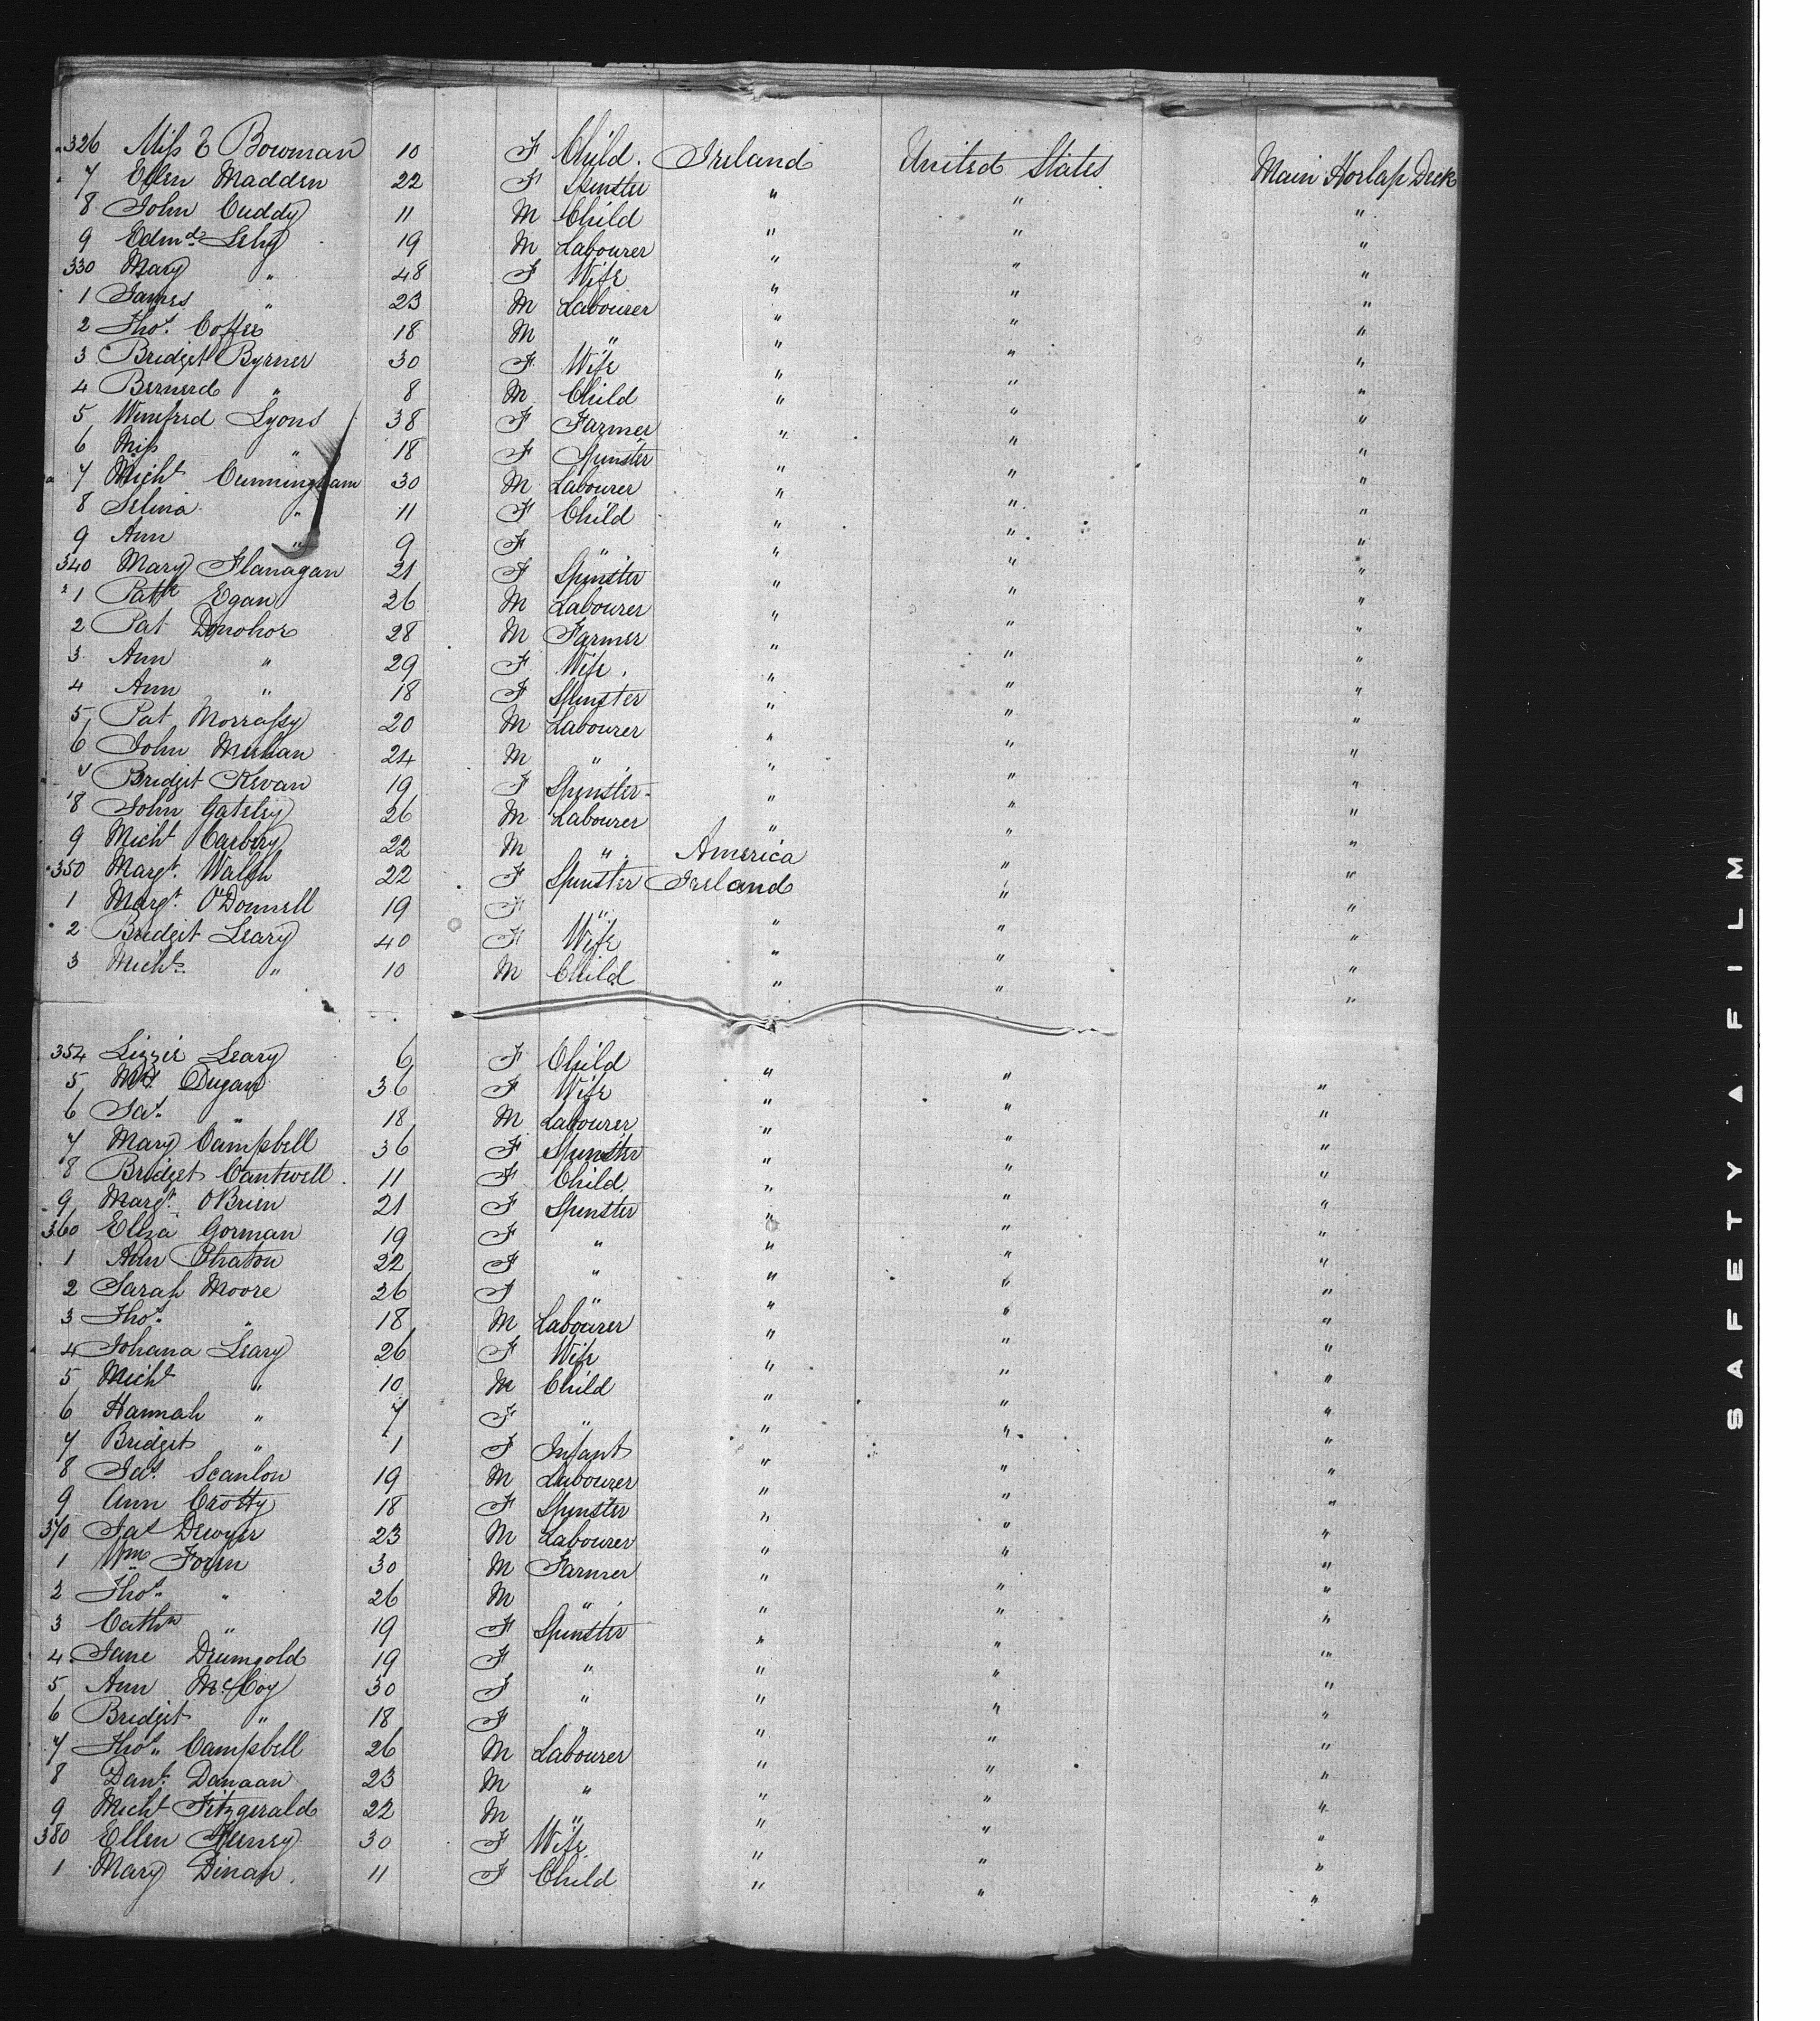 326 Miss E Bowman 10 F Child. Ireland United States Main Horlap Deck
7 Ellen Madden 22 F Spinster " " "
8 John Cuddy 11 M Child " " "
9 Edmd Lehy 19 M Labourer " " "
330 Mary " 48 F Wife " " "
1 James " 23 M Labourer " " "
2 Thos. Coffee 18 M " " " "
3 Bridget Byrner 30 F Wife " " "
4 Bernerd " 8 M Child " " "
5 Winifred Lyons 38 F Farmer " " "
6 Miss " 18 F Spinster " " "
7 Michl Cunningham 30 M Labourer " " "
8 Selina " 11 F Child " " "
9 Ann " 9 F " " " "
340 Mary Flanagan 21 F Spinster " " "
1 Patk Egan 26 M Labourer " " "
2 Pat Donohoe 28 M Farmer " " "
3 Ann " 29 F Wife. " " "
4 Ann " 18 F Spinster " " "
5 Pat Morrassy 20 M Labourer " " "
6 John Meehan 24 M " " " "
7 Bridget Kevan 19 F Spinster " " "
8 John Gateley 26 M Labourer " " "
9 Michl Carbery 22 M " America " "
350 Margt. Walsh 22 F Spinster Ireland " "
1 Margt. O'Donnell 19 F " " " "
2 Bridget Leary 40 F Wife " " "
3 Michl. " 10 M Child " " "
354 Lizzie Leary 6 F Child " " "
5 Mrs Dugan 36 F Wife " " "
6 Jas. " 18 M Labourer " " "
7 Mary Campbell 36 F Spinster " " "
8 Bridget Cantwell 11 F Child " " "
9 Margt. OBrien 21 F Spinster " " "
360 Eliza Gorman 19 F " " " "
1 Ann 22 F " " " "
2 Sarah Moore 26 F " " " "
3 Thos. " 18 M Labourer " " "
4 Johana Leary 26 F Wife " " "
5 Michl " 10 M Child " " "
6 Hannah " 7 F " " " "
7 Bridget " 1 F Infant " " "
8 Jas. Scanlon 19 M Labourer " " "
9 Ann Crotty 18 F Spinster " " "
370 Jas Dewyer 23 M Labourer " " "
1 Wm 30 M Farmer " " "
2 Thos. " 26 M " " " "
3 Cathn " 19 F Spinster " " "
4 Jane Drumgold 19 F " " " "
5 Ann McCoy 30 F " " " "
6 Bridget " 18 F " " " "
7 Thos. Campbell 26 M Labourer " " "
8 Danl. Danaan 23 M " " " "
9 Michl Fitzgerald 22 M " " " "
380 Ellen 30 F Wife " " "
1 Mary Dinan. 11 F Child " " "
SAFETY A FILM